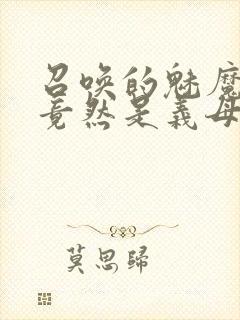 召唤的魅魔
竟然是義母
莫思歸